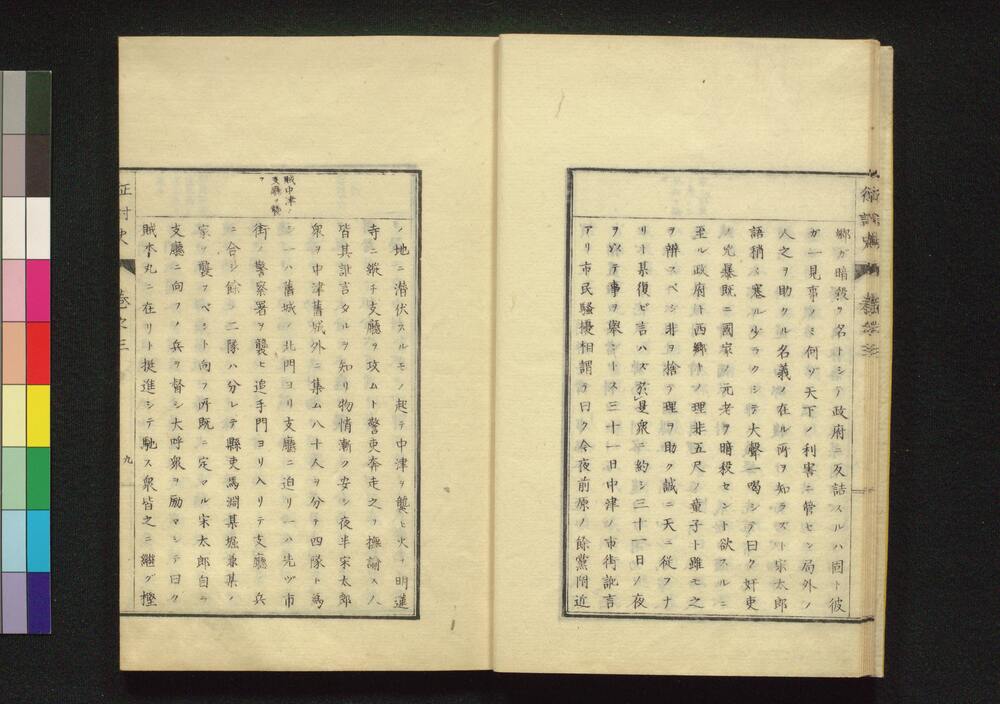 鄕ガ暗殺ヲ名トシテ政府ニ反詰スルハ固ト彼
ガ一見事ノミ何ゾ天下ノ利害ニ管セン局外ノ
人之ヲ助クル名義ノ在ル所ヲ知ラズト宋太郎
語稍〻塞ル少ラクシテ大聲一喝シテ曰ク奸吏
ノ兇暴既ニ國家ノ元老ヲ暗殺セント欲スルニ
至ル政府ト西鄕トノ理非五尺ノ童子ト雖モ之
ヲ辨スベシ非ヲ捨テ理ヲ助ク誠ニ天ニ從フナ
リト某復ビ言ハズ於是衆ニ約シ三十一日ノ夜
ヲ以テ事ヲ擧ントス三十一日中津ノ市街訛言
アリ市民騷擾相謂テ曰ク今夜前原ノ餘黨附近
ノ地ニ潛伏スルモノ起テ中津ヲ襲ヒ火ヲ明蓮
寺ニ縱チ支廳ヲ攻ムト警吏奔走之ヲ撫諭ス人
皆其訛言タルヲ知リ物情漸ク安シ夜半宋太郎
衆ヲ中津舊城外ニ集ム八十人ヲ分テ四隊ト爲
シ一ハ舊城ノ北門ヨリ支廳ニ迫リ一ハ先ヅ市
街ノ警察署ヲ襲ヒ追手門ヨリ入リテ支廳ノ兵
ニ合シ餘ノ二隊ハ分レテ縣吏馬淵某堀兼某ノ
家ヲ襲フベシト向フ所既ニ定マル宋太郎自ラ
支廳ニ向フノ兵ヲ督シ大呼衆ヲ勵マシテ曰ク
賊本丸ニ在リト挺進シテ馳ス衆皆之ニ繼グ樫
賊中津ノ
支廳ヲ襲
フ
征討史
卷之三
九